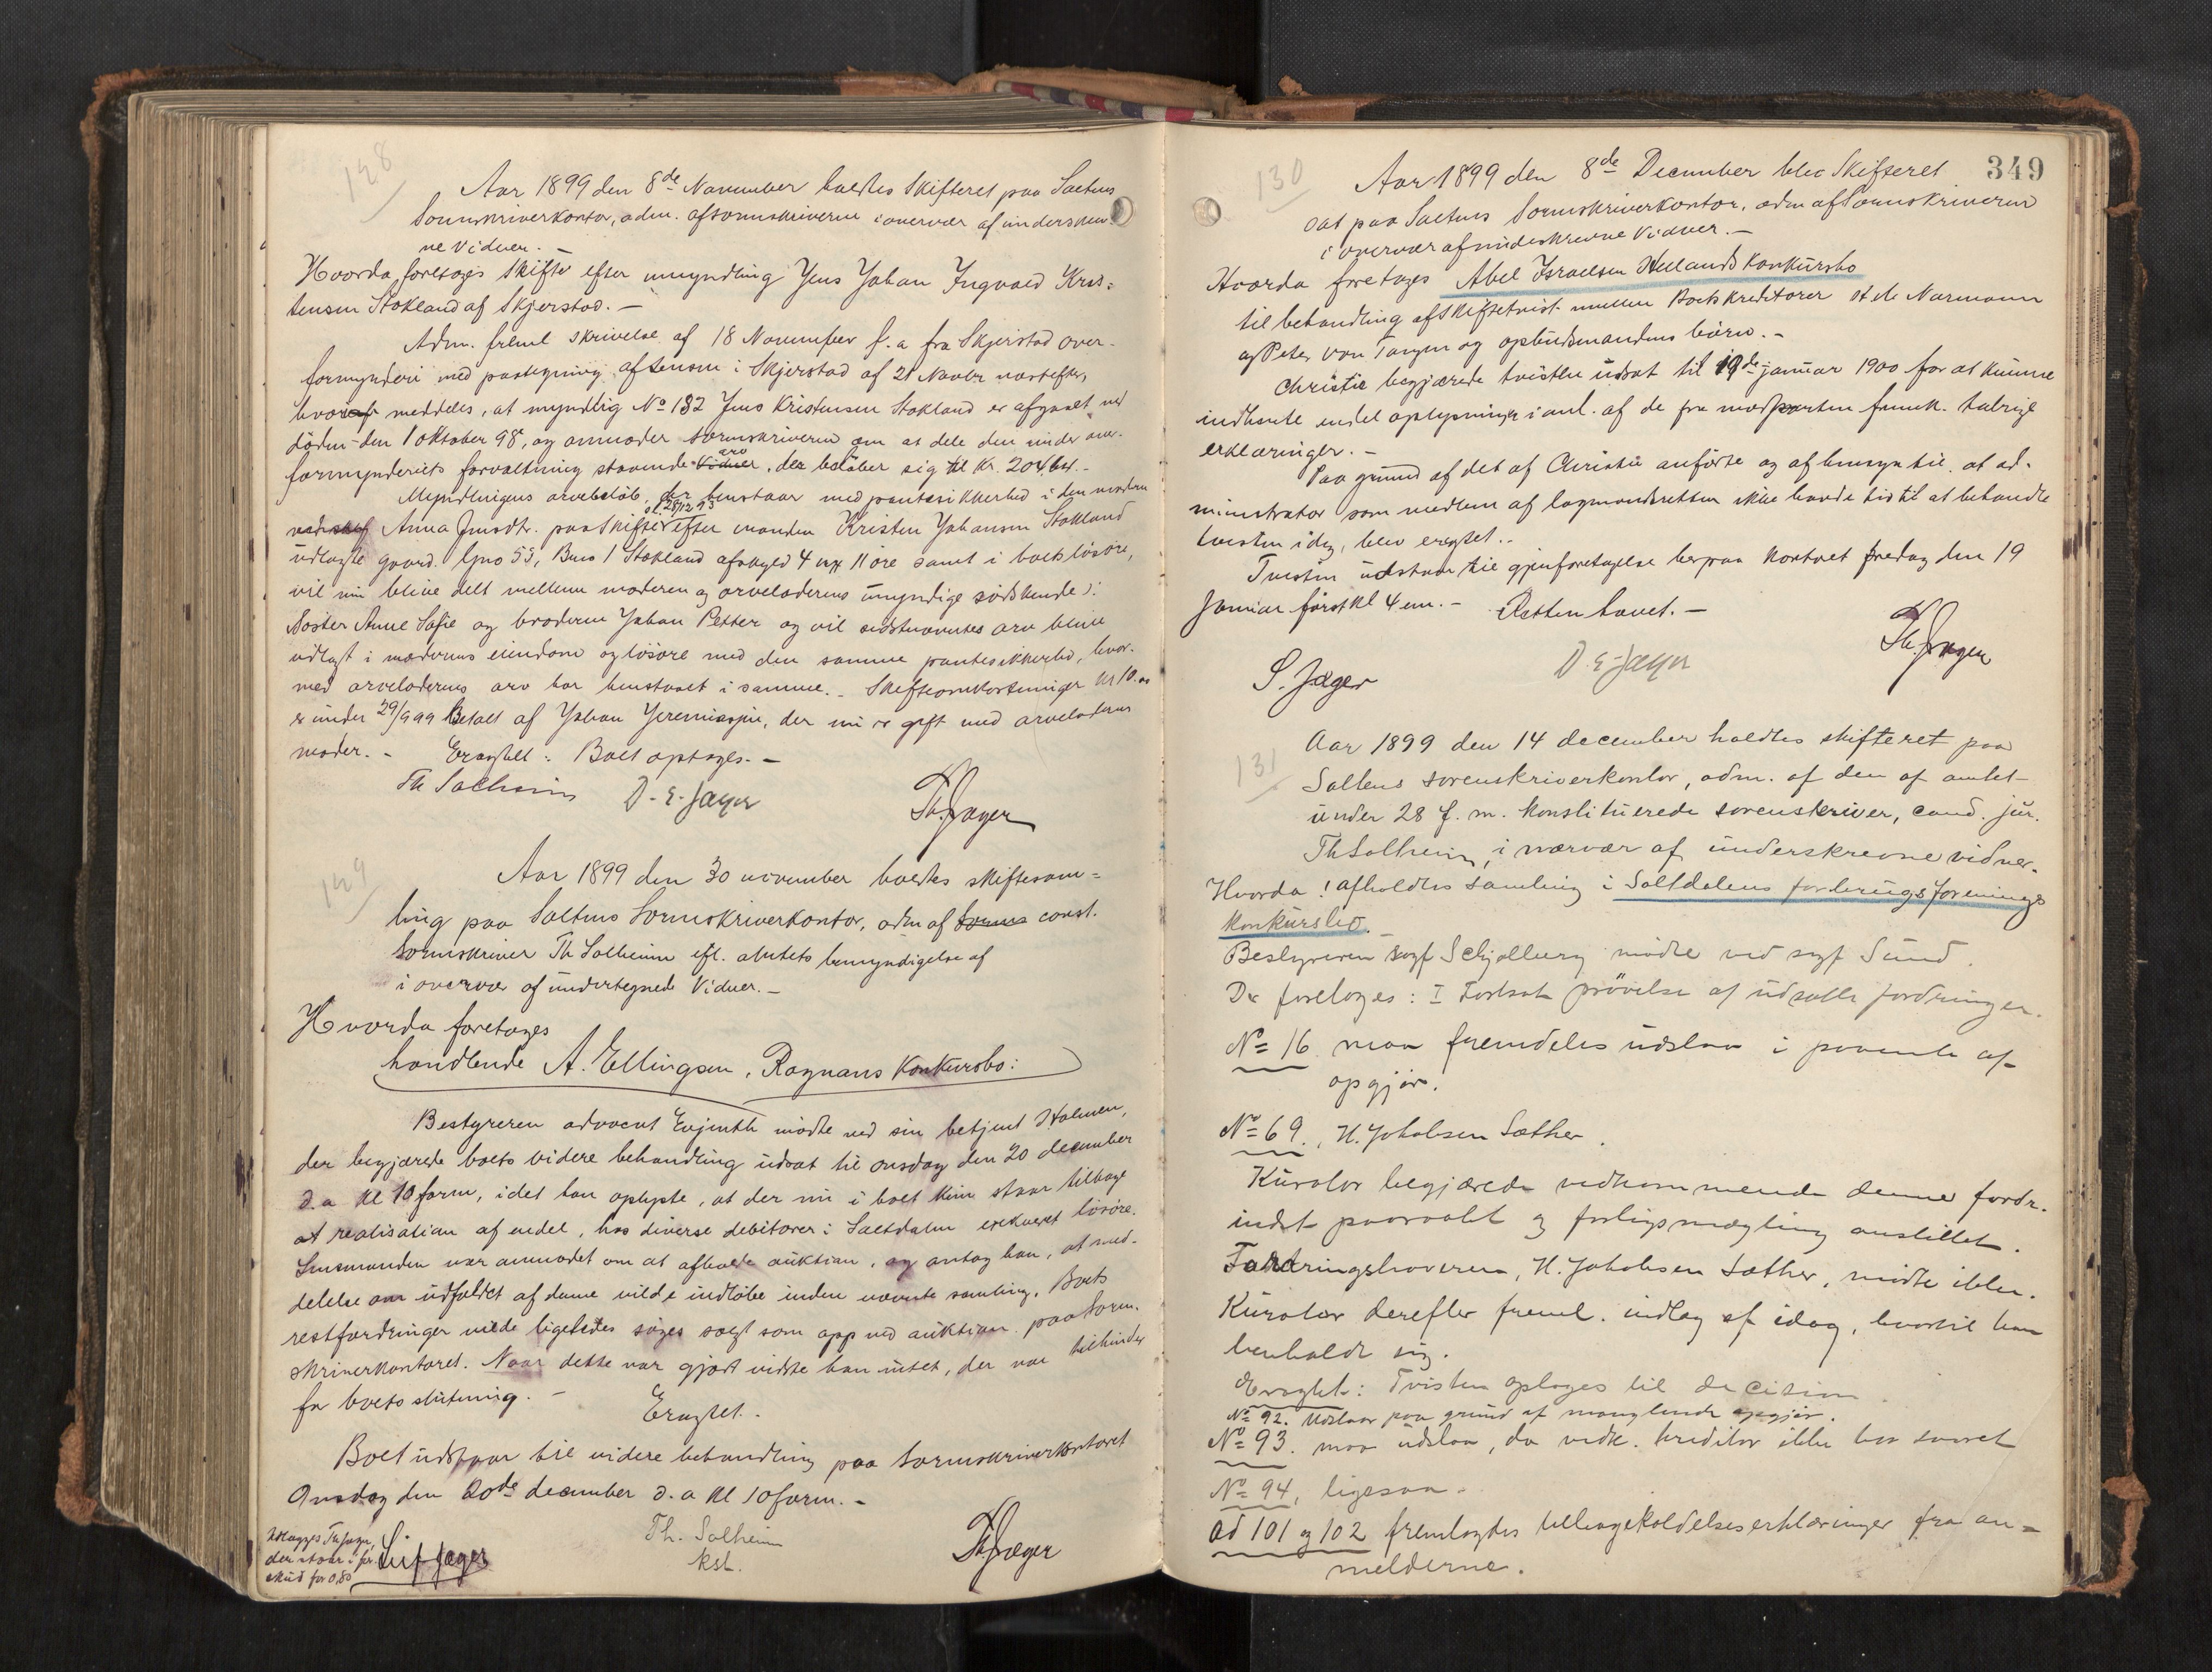 128
Aar 1899 den 8de November holdtes Skifteret paa Saltens
Sorenskriverkontor, adm. af sorenskriveren i overvær af underskrev-
ne Vidner. –
Hvorda foretoges Skifte efter umyndling Jens Johan Ingvald Kris-
tensen Stokland af Skjerstad. –
Adm. freml skrivelse af 18 November f. a fra Skjerstad over-
formynderi med paategning af lensm i Skjerstad af 21 Novbr næstefter,
hvori meddeles, at myndlig No 132 Jens Kristensen Stokland er afgaaet ved
døden den 1 oktober 98, og anmoder sorenskriveren om at dele den under over-
formynderiets forvaltning staaende Vidner arv, der beløber sig til Kr. 204,64. –
Myndlingens arvebeløb, der henstaar med pantesikkerhed i den moderen
Anna Jensdtr. paa Skifte sl. 28/12 93 efter manden Kristen Johansen Stokland
udlagte gaard. Gno 55, Bno 1 Stokland afskyld 4 11 øre samt i boets løsøre,
vil nu blive delt mellem moderen og arveladerens umyndige sødskende ɔ:
søster Anne Sofie og broderen Johan Petter og vil sidstnævntes arv blive
udlagt i moderens eiendom og løsøre med den samme pantesikkerhed, hvor-
med arveladerens arv har henstaaet i samme. – Skifteomkostninger Kr 10.00
er under 29/9 99 betalt af Johan Jeremiassen, der nu er gift med arveladerens
moder. – Eragtet: Boet optages. –
Th Solheim D. E. Jæger Th. Jæger
129
Aar 1899 den 30 november holdtes skiftesam-
ling paa Saltens Sorenskriverkontor, adm af Sorens const.
Sorenskriver Th Solheim efl. amtets bemyndigelse af
i overvær af undertegnede Vidner. –
Hvorda foretoges
handlende A. Ellingsen, Rognans Konkursbo:
Bestyreren advocat Evjenth mødte ved sin betjent Holmen,
der begjærede boets videre behandling udsat til onsdag den 20 december
d. a Kl 10 form, idet han oplyste, at der nu i boet kun staar tilbage
at realisation af endel, hos diverse debitorer i Saltdalen exekveret løsøre.
Lensmanden var anmodet om at afholde auktion, og antog han, at med-
delelse om udfaldet af denne vilde indløbe inden nævnte samling. Boets
restfordringer vilde ligeledes søges solgt som app ved auktion paa Soren-
skriverkontoret. Naar dette var gjort vidste han intet, der var tilhinder
for boets slutning. –
Eragtet. –
Boet udstaar til videre behandling paa Sorenskriverkontoret
Onsdag den 20de december d. a Kl 10 form. –
der staar i for-
skud for 0,80
Leif Jæger Th. Solheim
kst. Th. Jæger
349
130
Aar 1899 den 8de December blev Skifteret
sat paa Saltens Sorenskriverkontor, adm af Sorenskriveren
i overvær af underskrevne Vidner. –
Hvorda foretoges Abel Israelsen Hellands Konkursbo
til behandling af skiftetvist mellem Boets kreditorer st de Normann
og Peter von Tangen og opbudsmandens børn. –
Christie begjærede tvisten udsat til 19de januar 1900 for at kunne
indhente endel oplysninger i anl. af de fra modparten fremk. talrige
erklæringer. –
Paa grund af det af Christie anførte og af hensyn til, at ad-
ministrator som medlem af lagmandsretten ikke havde tid til at behandle
tvisten idag, blev eragtet. –
Tvisten udstaar til gjenforetagelse her paa kontoret fredag den 19
Januar først kl 4 em. – Retten hævet. –
S. Jæger D. E. Jæger Th. Jæger
131
Aar 1899 den 14 december holdtes skifteret paa
Saltens sorenskriverkontor, adm. af den af amtet
under 28 f. m. konstituerede sorenskriver, cand. jur.
Th Solheim, i nærvær af underskrevne vidner.
Hvorda! afholdtes samling i Saltdalens forbrugsforenings
konkursbo.
Bestyreren sagf Schjølberg mødte ved sagf Sund.
Der foretoges: I Fortsat prøvelse af udsatte fordringer.
No 16 maa fremdeles udstaa i paavente af
opgjør.
No 69. H. Jakobsen Sæther.
Kurator begjærede vedkommende denne fordr.
indst paaraabt og forligsmægling anstillet.
Fordringshaveren, H. Jakobsen Sæther, mødte ikke.
Kurator derefter freml. indlæg af idag, hvortil han
henholdt sig.
Eragtet: Tvisten optages til decision
No 92. Udstaar paa grund af manglende opgjør.
No 93. maa udstaa, da vedk. kreditor ikke har svaret
No 94, ligesaa.
Ad 101 og 102 fremlagdes tilbagekaldelseserklæringer fra an-
melderne.